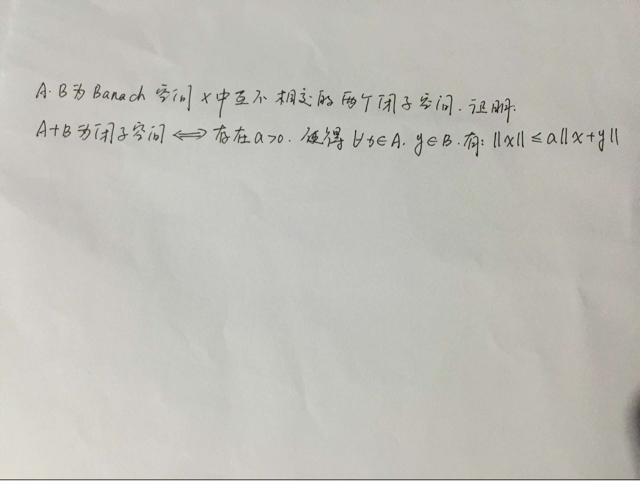 A·B为Banach空间X中互不相交的两个闭子空间.证明.
A+B为闭子空间⟺存在a>0.使得∀x∈A.y∈B.有:||x||≤a||x+y||